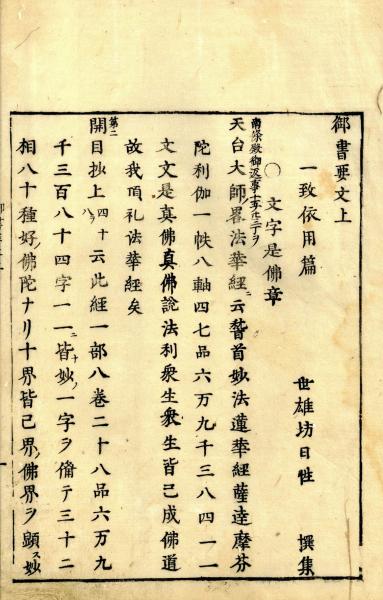 御書要文上
一致依用篇
世雄坊日性 撰集
○文字是佛章
南條殿御返事
天台大師ノ畧法華經ニ云ク稽首妙法蓮華經薩達摩芬
陀利伽一帙八軸四七品六万九千三八四一一
文文是眞佛眞佛說法利衆生衆生皆已成佛道
故我頂礼法華經矣
第二
開目抄上四十八ヲ云此經一部八巻二十八品六万九
千三百八十四字一一ニ皆妙ノ一字ヲ備テ三十二
相八十種好ノ佛陀ナリ十界皆己界ノ佛界ヲ顕ス妙